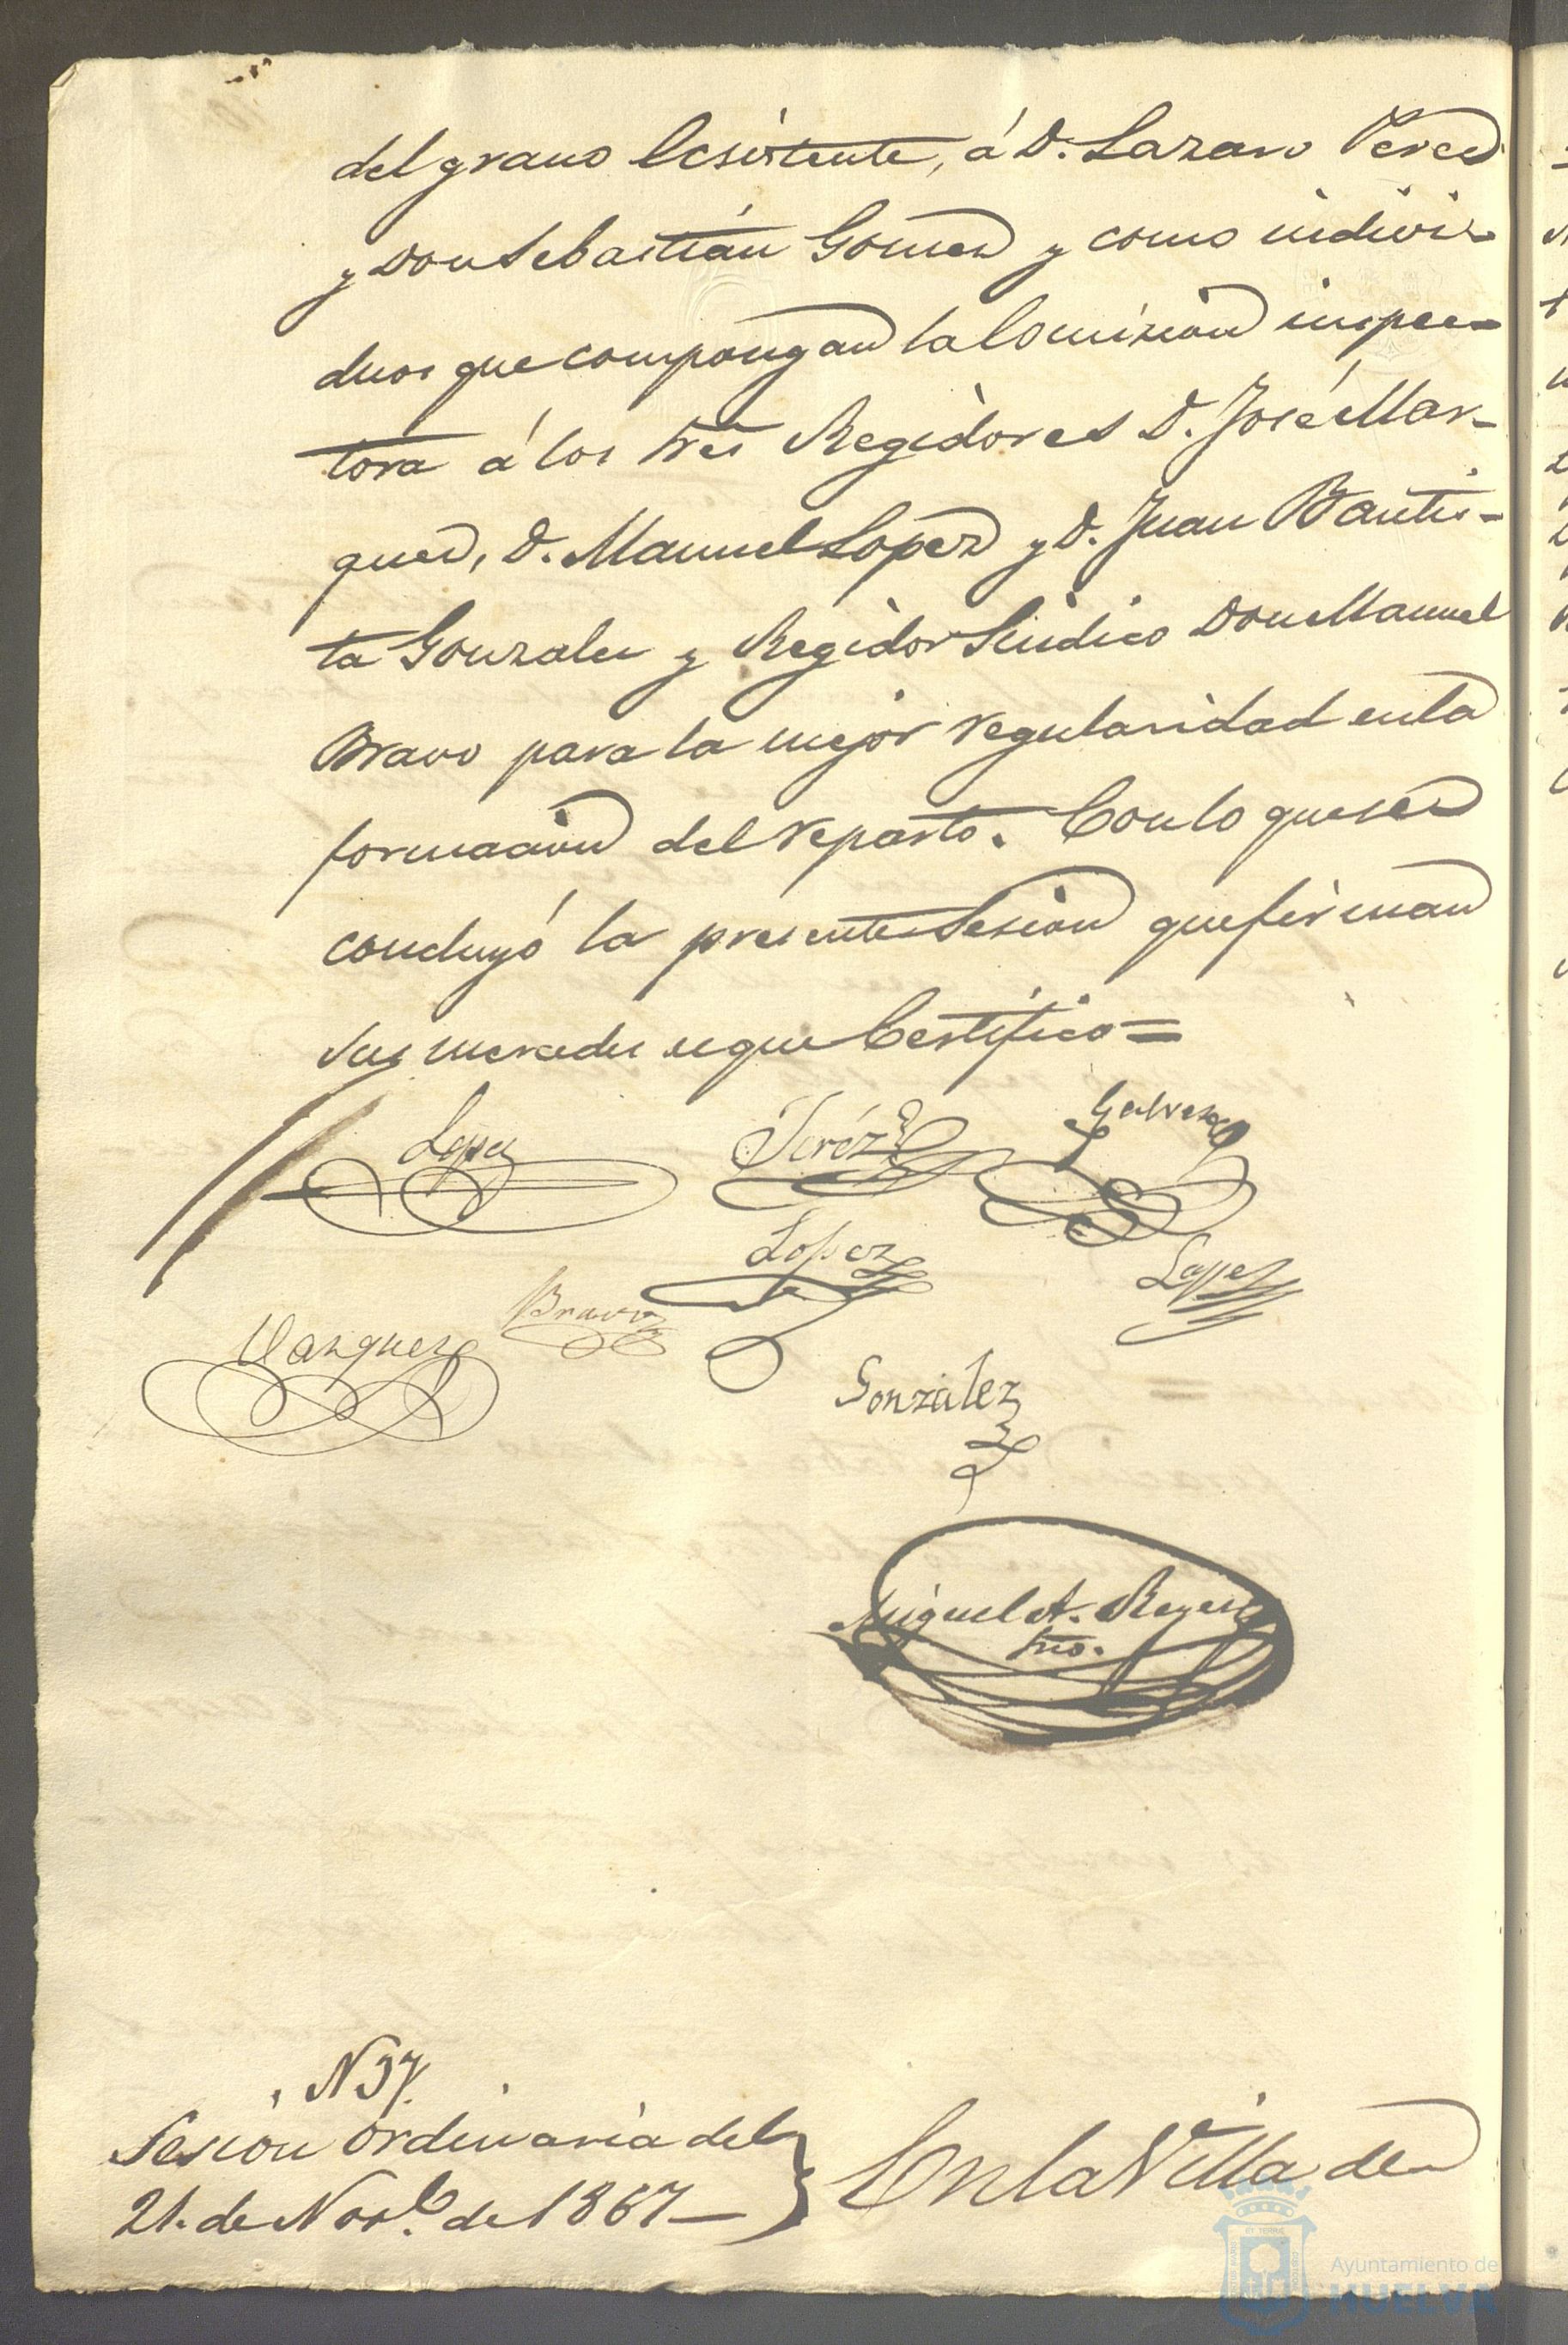 del grano Ecsistente, á D. Lazaro Perez
y Don Sebastián Gomez y como indivi-
duos que compongan la Comision inspec-
tora á los tres Regidores D. José Mar-
quez, D. Manuel Lopez y D. Juan Bautis-
ta Gonzalez y Regidor Sindico Don Manuel
Bravo para la mejor regularidad en la
formacion del reparto. Con lo que se
concluyó la presente Sesion que firman
sus mercedes de que Certifico=
Lopez Jeréz Galvez
Lopez Lopez
Vazquez Bravo
Gonzalez
Miguel A. Reyes
Srio.
N 37.
Sesion ordinaria del
21. de Novb. de 1867
En la Villa de
Ayuntamiento de
HUELVA